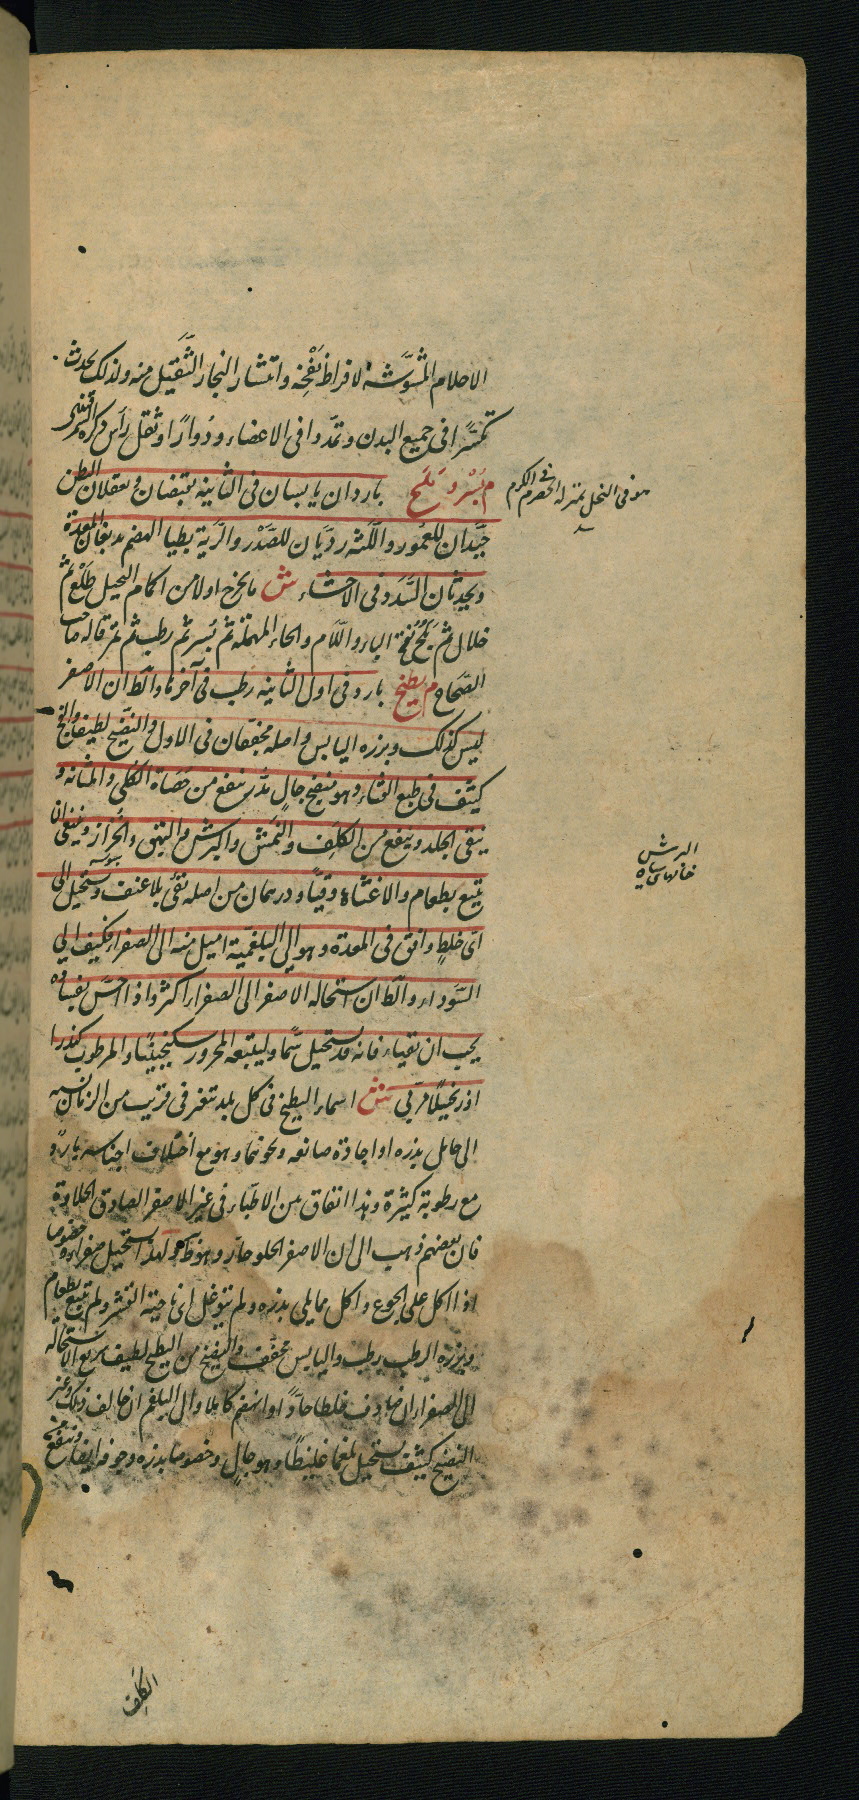 الاحلام المشوشة لافراط نفخه وانتشار البخار الثقيل منه ولذلك يحدث
تكسرا فى جميع البدن وتمددا فى الاعضاء ودوارا وثقل رأس
م بسر وبلح باردان يابسان فى الثانية يقبضان ويعقلان البطن
جيدان للعمور واللثة رديان للصدر والرية بطيا الهضم يدبغان المعدة
ويحدثان السدد فى الاحشاء ش ما يخرج اولا من اكمام النخيل طلع ثم
خلال ثم بلح بفتح الباء واللام والحاء المهملة ثم بسر ثم رطب ثم تمر قاله صاحب
الصحاح م بطيخ بارد فى اول الثانية رطب فى آخرها والظ ان الاصفر
ليس كذلك وبزره اليابس واصله مجففان فى الاول والنضيج لطيف والفج
كثيف فى طبع القثاء وهو منضج جال مدر ينفع من حصاة الكلى والمثانة و
ينقى الجلد وينفع من الكلف والنمش والبرش والبهق والحزاز وينبغى ان
يتبع بطعام والا غثا وقيأ ودرهمان من اصله تقئ بلا عنف ويستحيل الى
اى خلط وافق فى المعدة وهو الى البلغمية اميل منه الى الصفراء فكيف الى
السوداء والظ ان استحالة الاصفر الى الصفراء اكثر واذا احس بفساده
يجب ان تقياء فانه قد يستحيل سما وليتبعه المحرور سكنجبينا والمرطوب كندرا
او زنجبيلا مربى ش اسماء البطيخ فى كل بلد تتغير فى قريب من الزمان نسبه
الى حامل بذره او اجادة صانعه ونحوهما وهو مع اختلاف اجناسه بارد
مع رطوبة كثيرة وهذا اتفاق من الاطباء فى غير الاصفر الصادق الحلاوة
فان بعضهم ذهب الى ان الاصفر الحلو حار وهو ولهذا يستحيل صفراء خصوصا
اذا اكل على الجوع واكل مما يلى بذره ولم يتوغل الى ناحية القشر ولم يتبع بطعام
وبزره الرطب رطب واليابس مجفف والنضيج من البطيخ لطيف سريع الاستحالة
الى الصفراء ان صادف خلطا حادا او انهضم كاملا والى البلغم ان خالف ذلك وغير
النضيج كثيف يستحيل بلغما غليظا وهو جال وخصوصا بذره وجوفه
هو فى النخل بمنزلة الحصرم فى الكرم
البرش
خالهاى سياه
الكلف